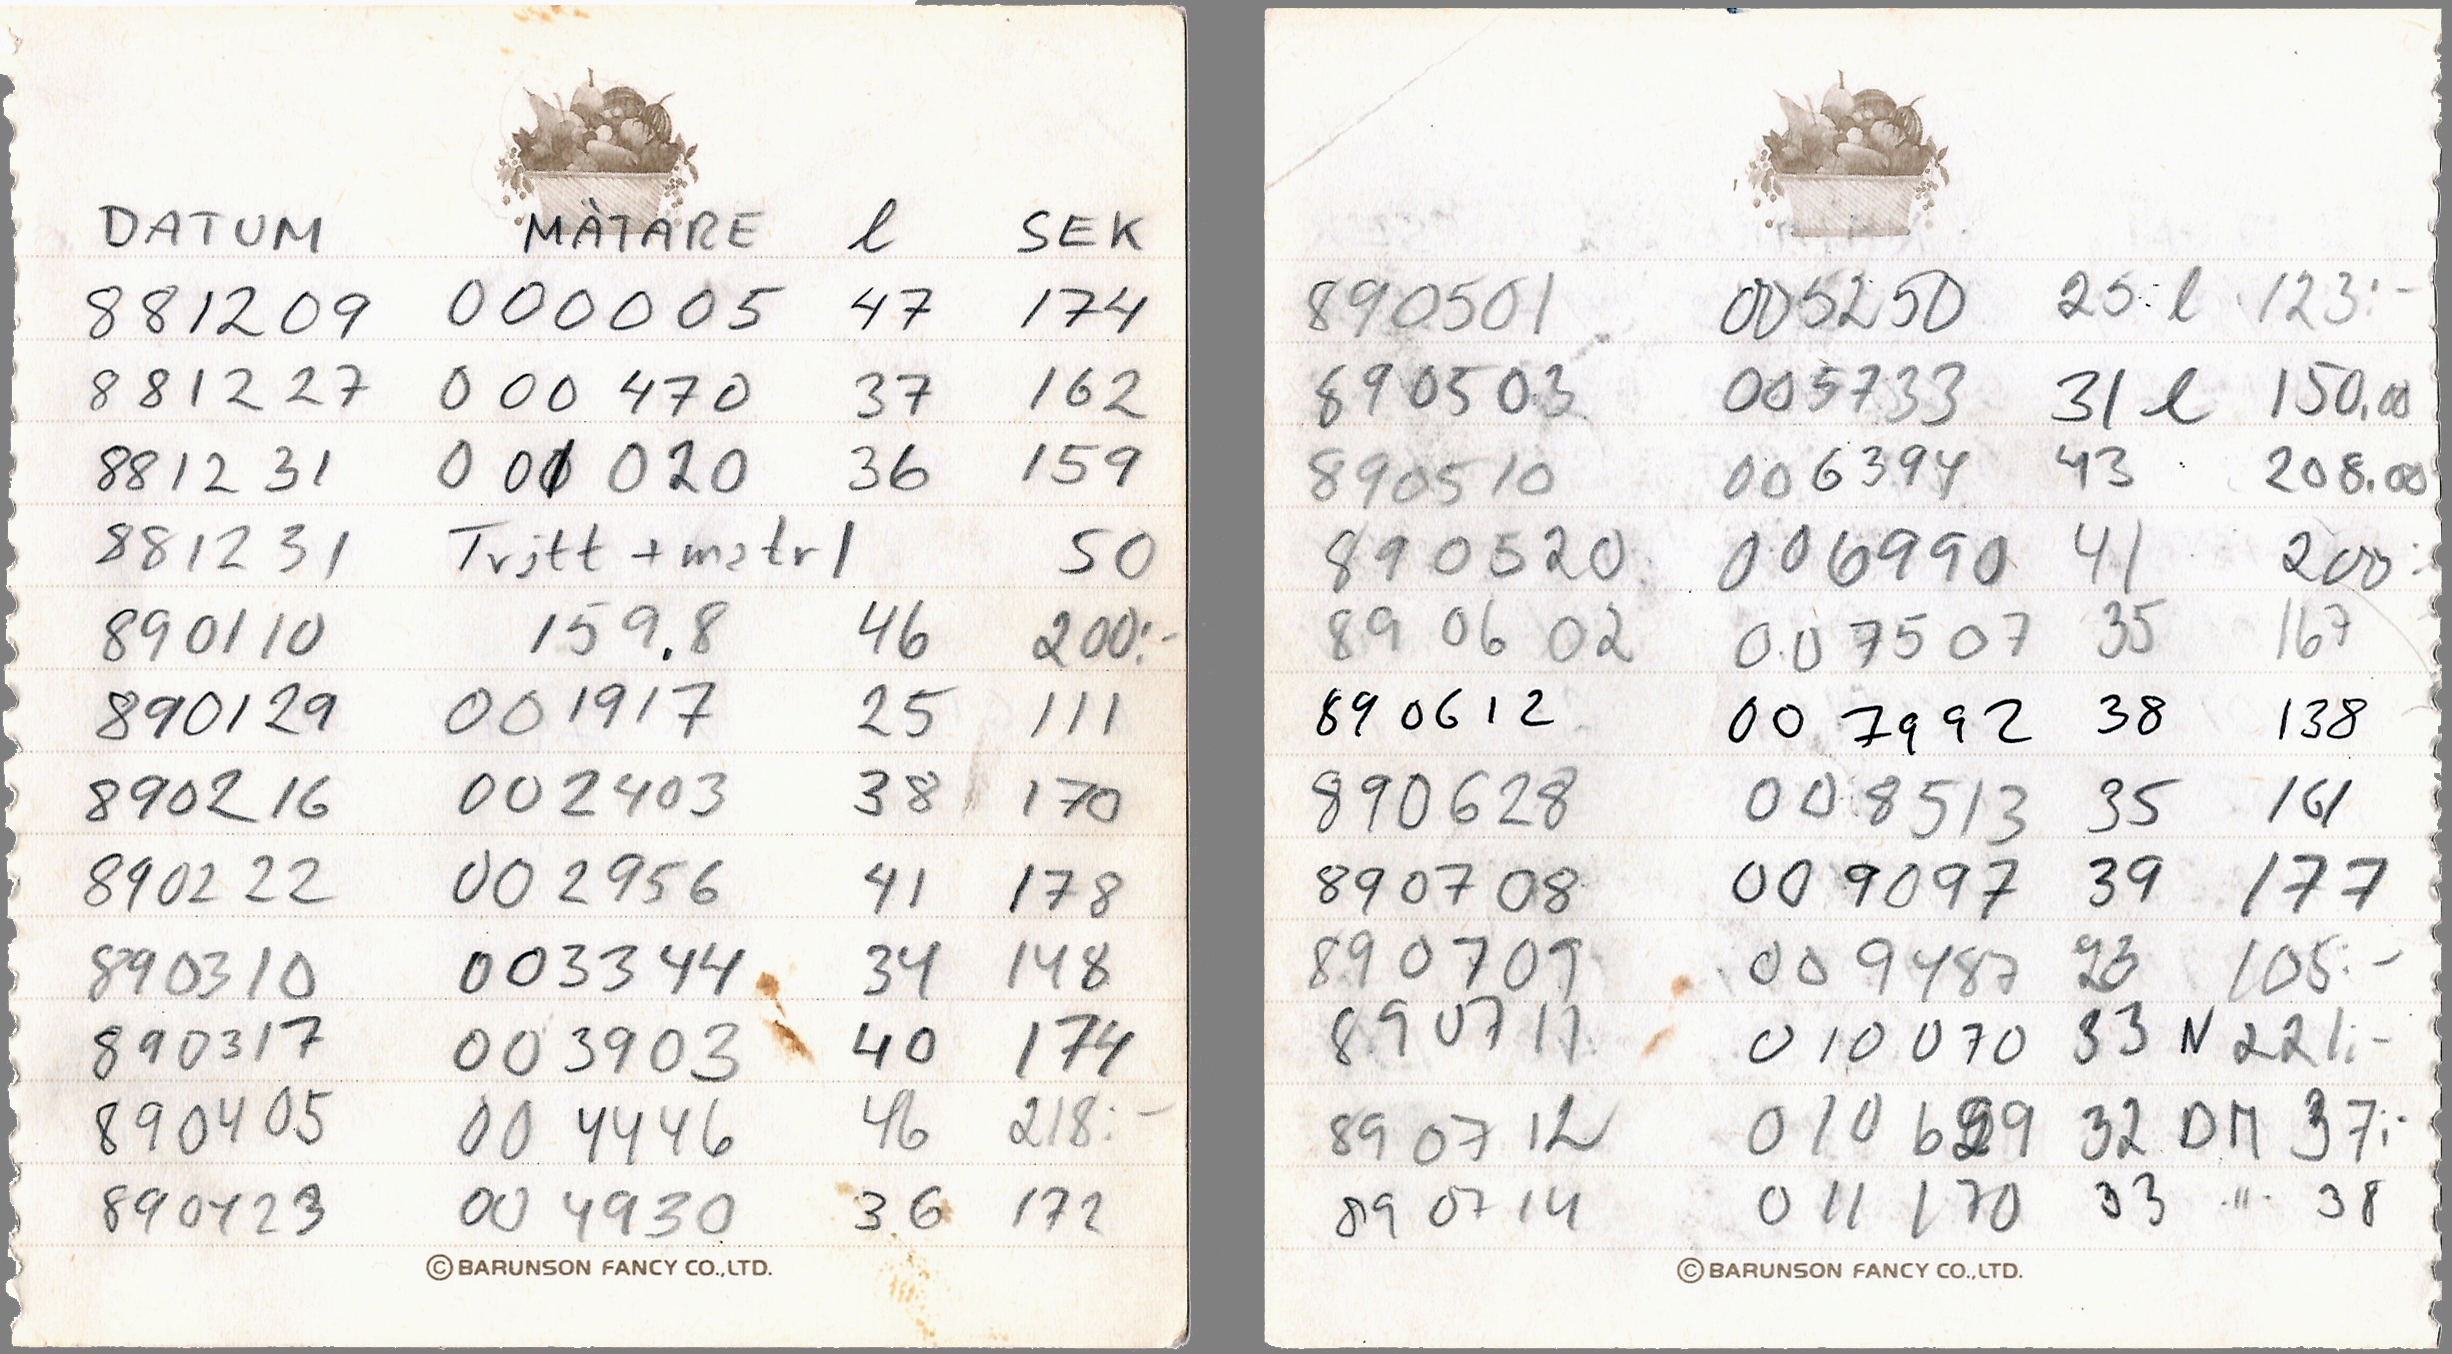 DATUM MÄTARE l SEK
881209 000005 47 174
881227 000470 37 162
881231 001020 36 159
881231 Trätt + matrl 50
890110 159.8 46 200:-
890129 001917 25 111
890216 002403 38 170
890222 002956 41 178
890310 003344 34 148
890317 003903 40 174
890405 004446 46 218:-
890423 004930 36 172
©BARUNSON FANCY CO.,LTD.
890501 005250 25 l 123:-
890503 005733 31 l 150,00
890510 006394 43 208.00
890520 006990 41 200:-
890602 007507 35 167
890612 007992 38 138
890628 008513 35 161
890708 009097 39 177
890709 009487 23 105:-
890711 010070 33 N 221:-
890712 010629 32 DM 37:-
890714 011170 33 " 38
©BARUNSON FANCY CO.,LTD.